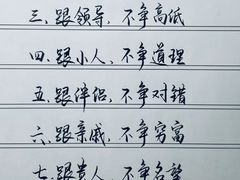 三、跟领导，不争高低
四、跟小人，不争道理
五、跟伴侣，不争对错
六、跟亲戚，不争穷富
七、跟贵人，不争名誉